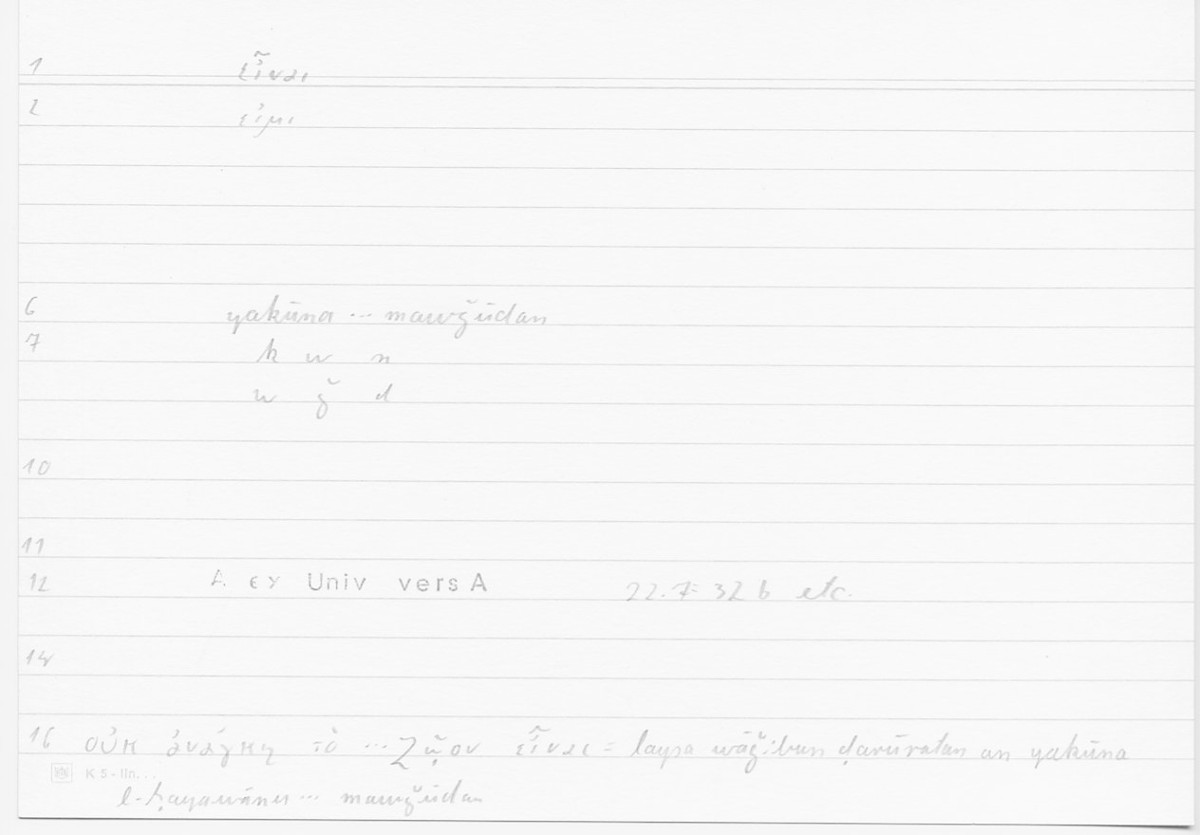 1 εἶναι
2 εἰμι
6 yakūna ... mawǧūdan
7 k w n
w ǧ d
10
11
12 Univ vers A 22.7 = 32 b etc.
14
16 οὐκ ἀνάγκη τὸ ... ζῷον εἶναι = laysa wāǧiban ḍarūratan an yakūna
K 5 - lin. . .
l-ḥayawānu ... mawǧūdan